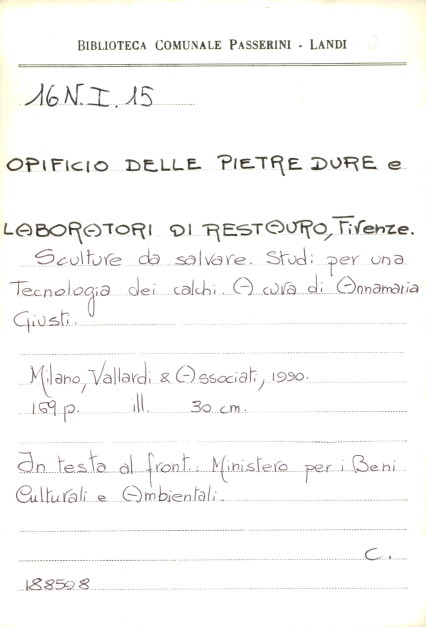 BIBLIOTECA COMUNALE PASSERINI - LANDI
16 N. I. 15
OPIFICIO DELLE PIETRE DURE e
LABORATORI DI RESTAURO, Firenze.
Sculture da salvare. Studi per una
Tecnologia dei calchi. A cura di Annamaria
Giusti.
Milano, Vallardi & Associati, 1990.
159 p. ill. 30 cm.
In testa al front.: Ministero per i Beni
Culturali e Ambientali.
C.
188508